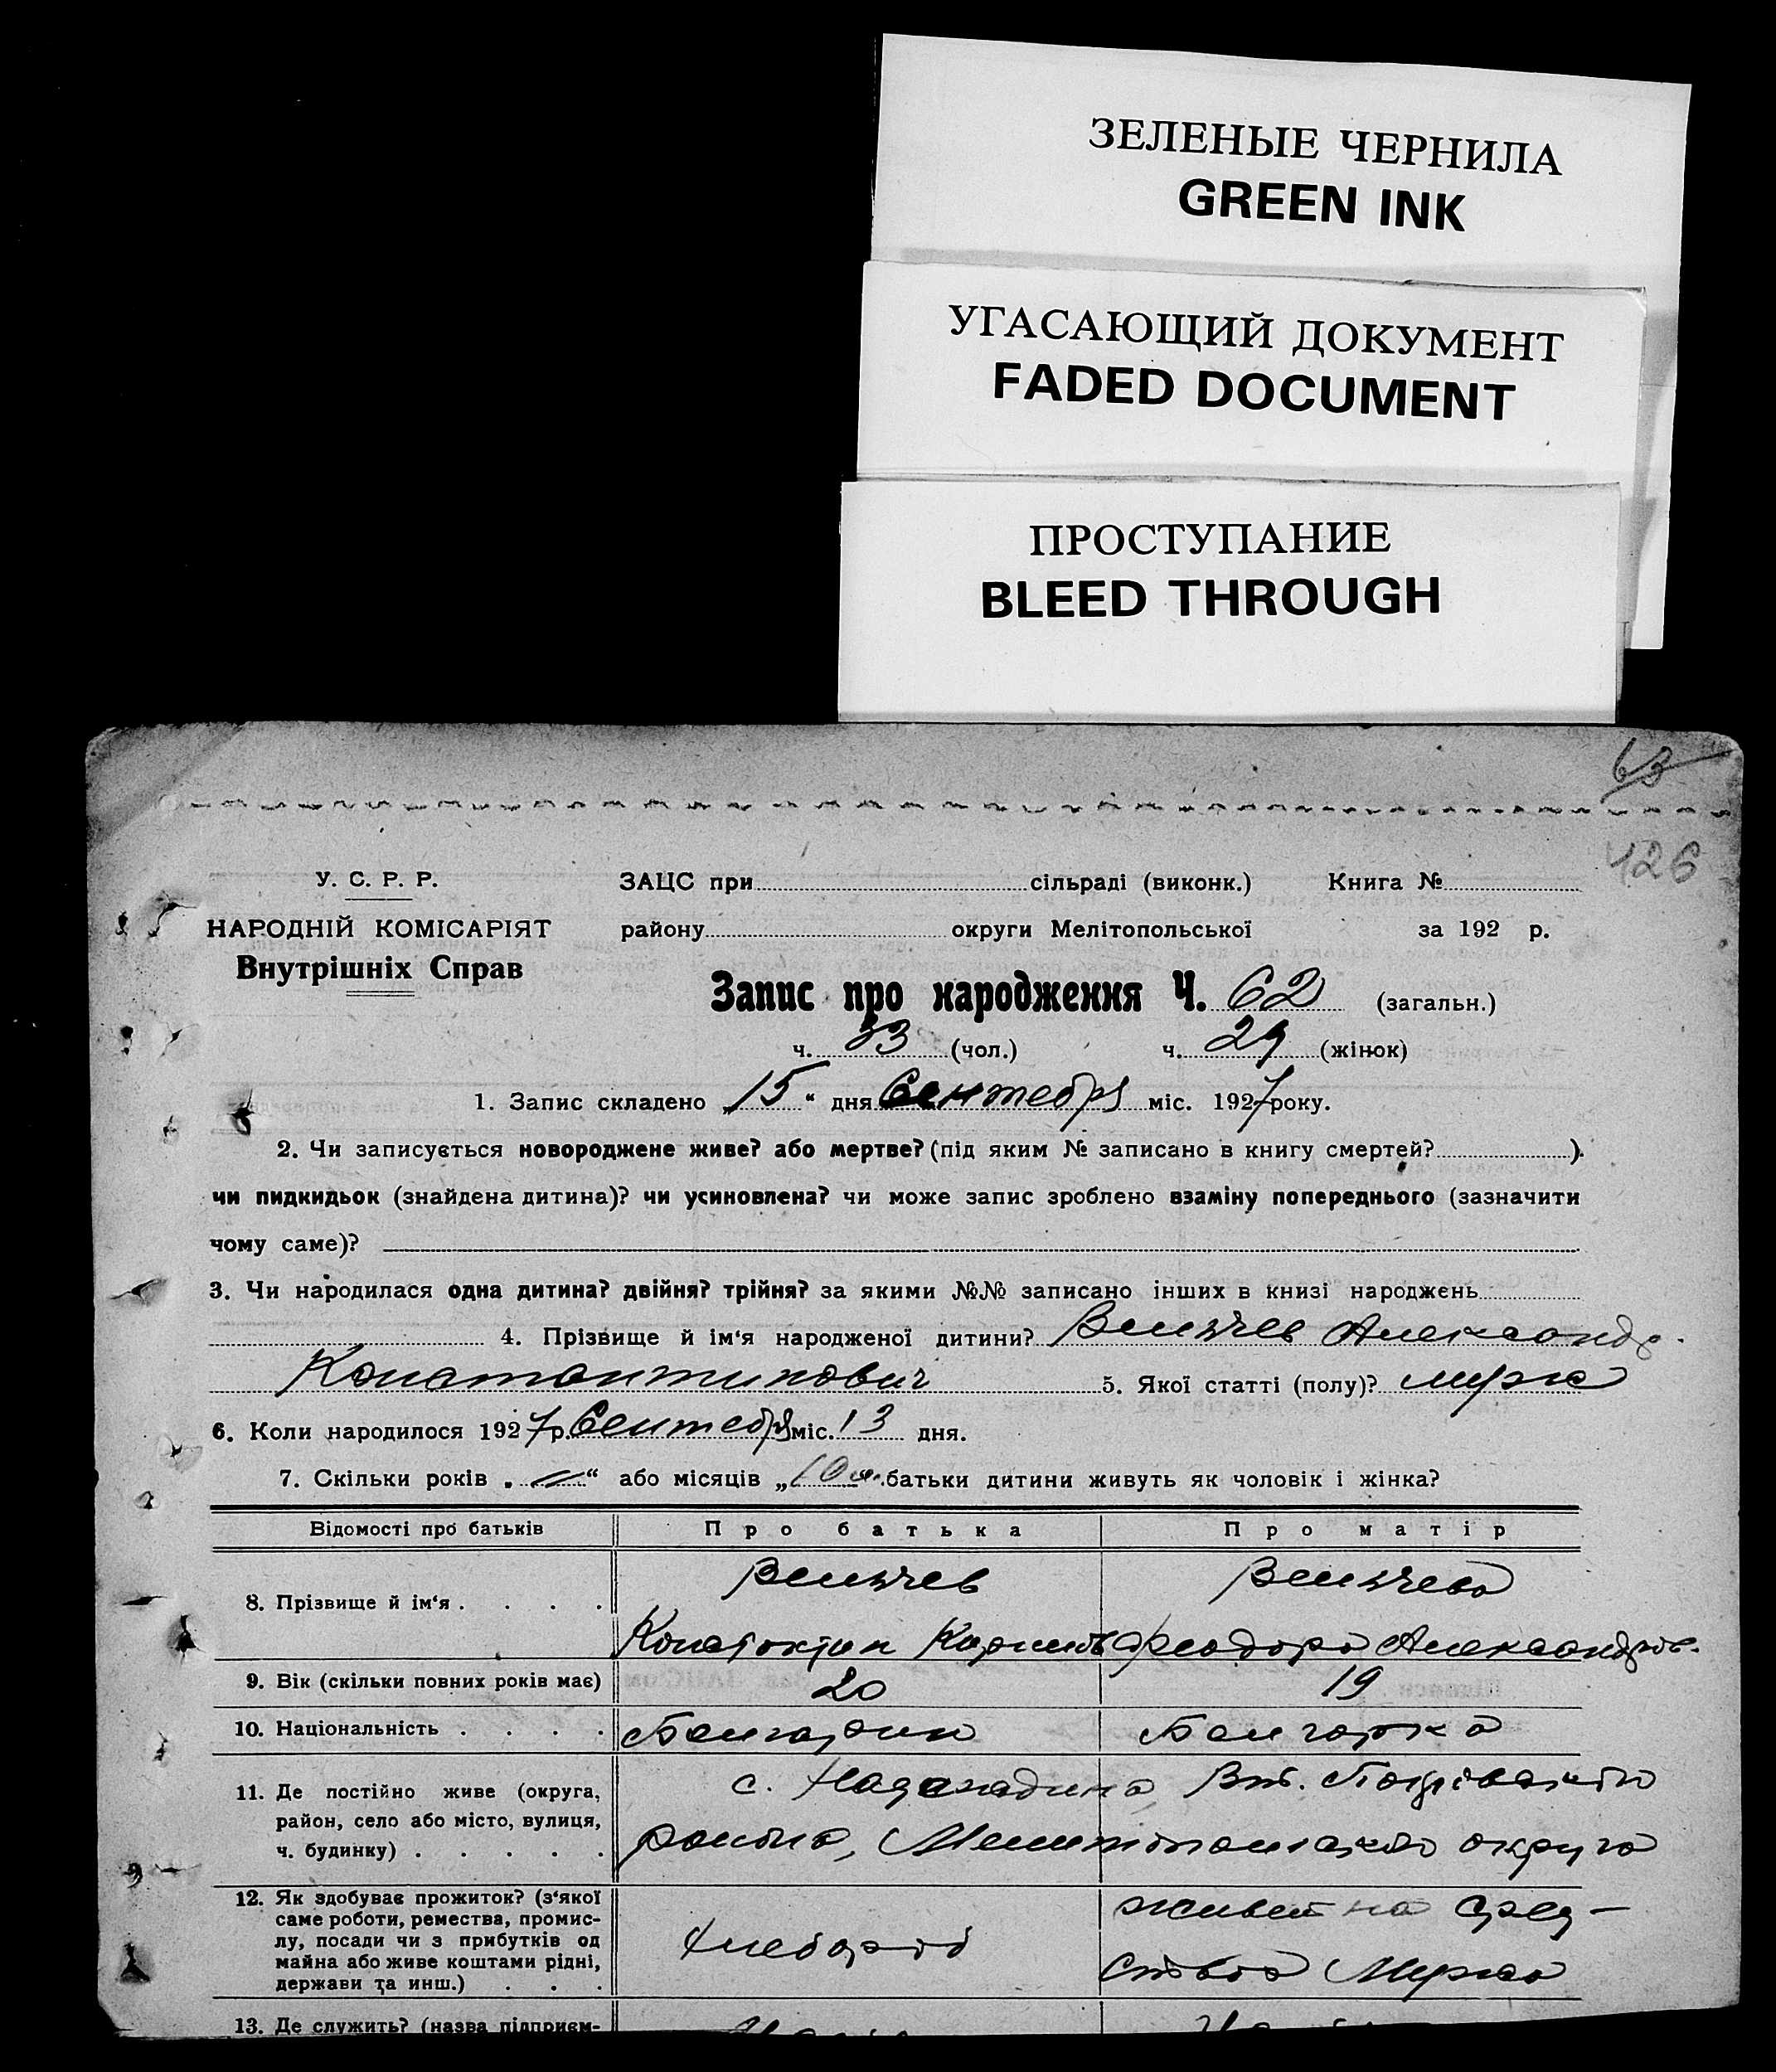 ЗЕЛЕНЫЕ ЧЕРНИЛА
GREEN INK
УГАСАЮЩИЙ ДОКУМЕНТ
FADED DOCUMENT
ПРОСТУПАНИЕ
BLEED THROUGH
63
126
У. С. Р. Р.
НАРОДНІЙ КОМІСАРІЯТ
Внутрішніх Справ
ЗАЦС при сільраді (виконк.) Книга №
району округи Мелітопольської за 192 р.
Запис про народження Ч. 62 (загальн.)
ч. 33 (чол.) ч. 29 (жінок)
1. Запис складено „15“ дня Сентебря міс. 1927 року.
2. Чи записується новороджене живе? або мертве? (під яким № записано в книгу смертей? ).
чи пидкидьок (знайдена дитина)? чи усиновлена? чи може запис зроблено взаміну попереднього (зазначити
чому саме)?
3. Чи народилася одна дитина? двійня? трійня? за якими №№ записано інших в книзі народжень
4. Прізвище й ім'я народженої дитини? Александр
Константинович 5. Якої статті (полу)? мужс
6. Коли народилося 1927 р. Сентебря міс. 13 дня.
7. Скільки років „ “ або місяців „10 батьки дитини живуть як чоловік і жінка?
Відомості про батьків Про батька Про матір
8. Прізвище й ім'я
Константин Феодора Александров.
9. Вік (скільки повних років має) 20 19
10. Національність Болгарин Болгарка
11. Де постійно живе (округа,
район, село або місто, вулиця,
ч. будинку)
с.
района, Мелитопольского округа
12. Як здобуває прожиток? (з'якої
саме роботи, ремества, промис-
лу, посади чи з прибутків од
майна або живе коштами рідні,
держави та инш.)
Хлебороб
живет на сред-
ства Мужа
13. Де служить? (назва підприєм-